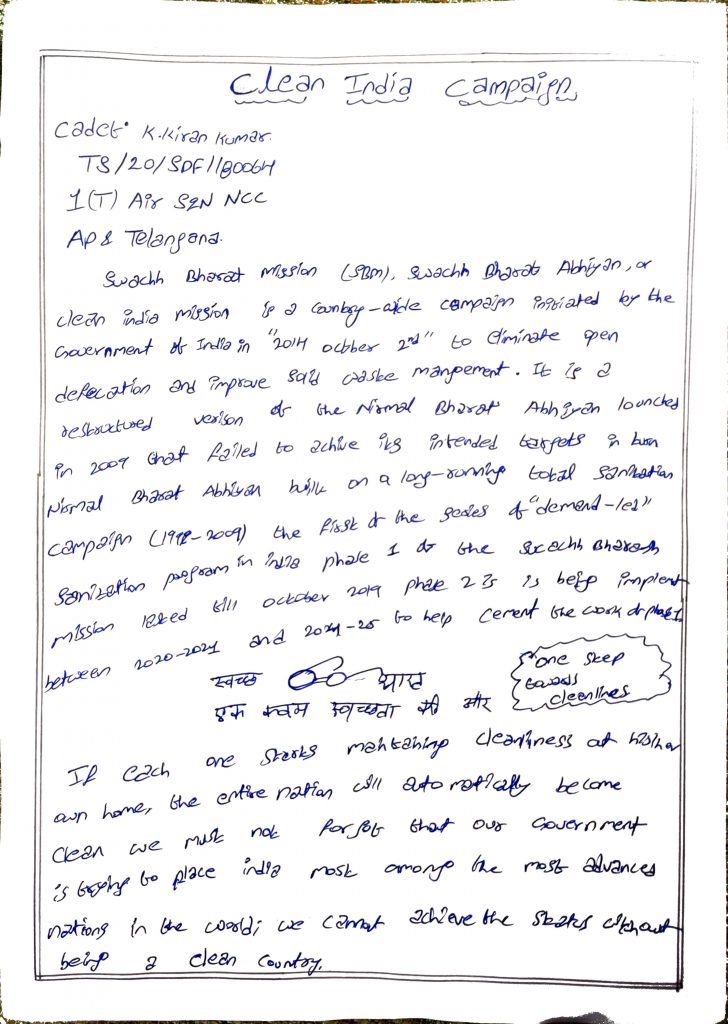 Clean India Campaign
Cadet: K.Kiran Kumar.
TS/20/SDF/
1(T) Air SQN NCC
AP & Telangana.
Swachh Bharat Mission (SBM), Swachh Bharat Abhiyan, or
clean india mission is a country-wide campaign initiated by the
Government of India in "2014 octber 2nd" to eliminate open
defecation and improve soild waste mangement. It is a
restructured verison of the Nirmal Bharat Abhiyan lounched
in 2009 that failed to achive its intended targets in
Nirmal Bharat Abhiyan built on a long-running total sanitation
campaign (-2009) the first of the series of "demand-led"
sanitation program in india phase 1 of the Swachh Bharath
mission lasted till october 2019 phase 2 is is being implent
between 2020-2021 and 2024-25 to help cement the work of phase 1.
स्वच्छ भारत
एक कदम स्वच्छता की और
one step
towards
cleanlines
If each one starts maintaining cleanliness at his/her
own home, the entire nation will automatically become
clean we must not forget that our Government
is trying to place india most amonge the most advances
nations in the world; we cannot achieve the states without
being a clean country.